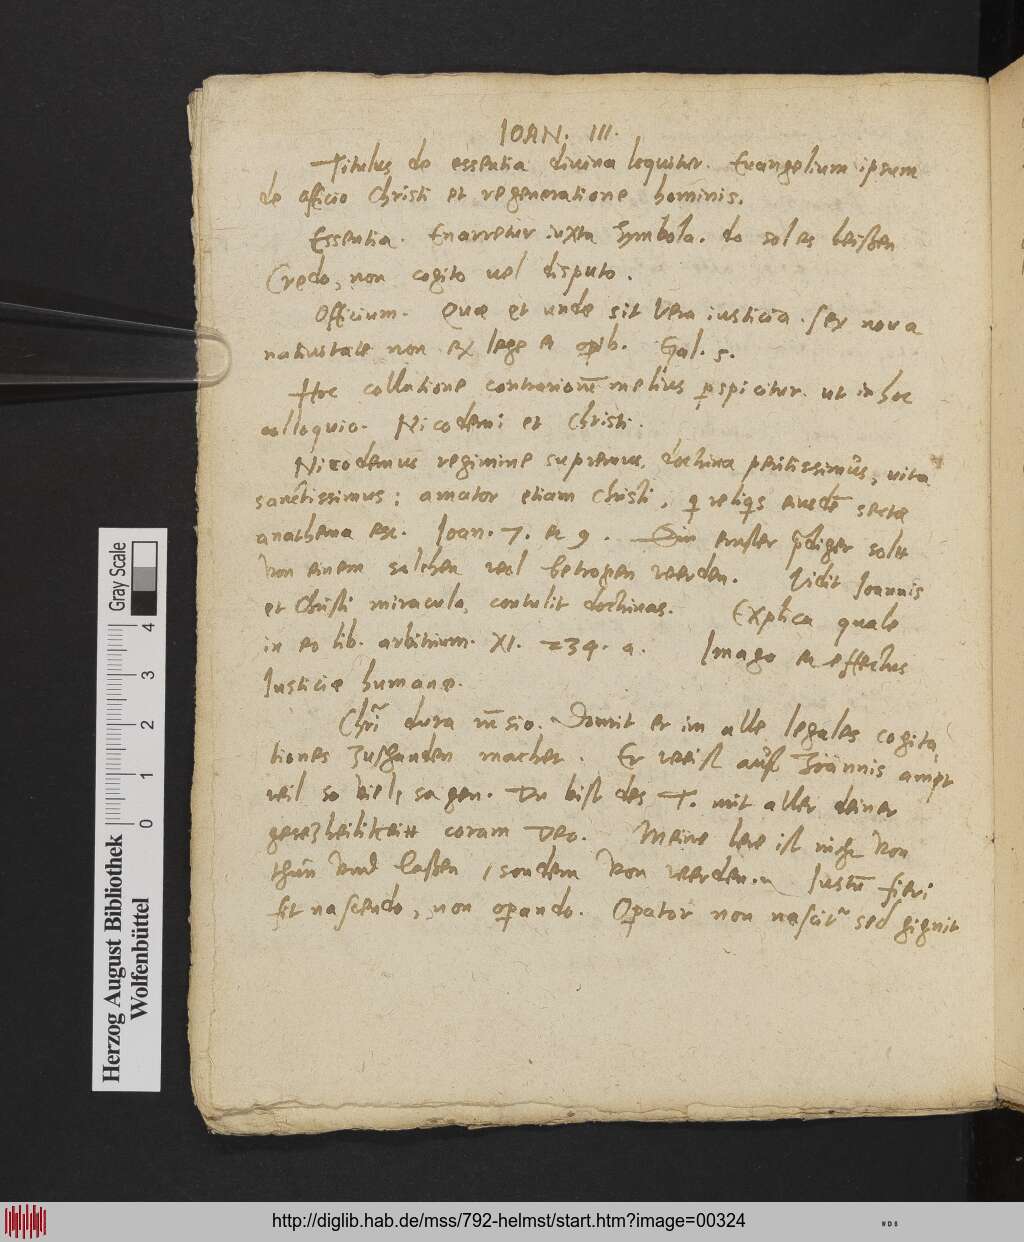 IOAN. III.
Titulus de essentia divina loquitur. Evangelium ipsum
de officio Christi et regeneratione hominis.
Essentia. Enarretur iuxta Symbola. do sol es heißen
Credo, non cogito uel disputo.
Officium. Quae et unde sit vera iusticia. sex nova
natiuitate non ex lege et opib. Gal. 5.
Hoc collatione contrariorū melius pspicitur. ut in hoc
colloquio. Nicodemi et Christi.
Nicodemus regimine supremus, doctrina peritissimus, uita
sanctissimus: amator etiam Christi, q reliqs eiusdē sectae
anathema est. Ioan. 7. et 9. Ein erster pdiger solt
von einem solchen wol betrogen werden. Vidit Joannis
et Christi miracula, contulit doctrinas. Explica quale
in eo lib. arbitrium. XI. 234. a. Imago et effectus
Iusticiae humanae.
Chri dura rn̄sio. Domit er im alle legales cogita
tiones zuschanden machet. Er weist auff Joannis ampt
wil so viel sagen. Du bist des T. mit aller deiner
gesetzheilikeitt coram Deo. Meine lere ist nicht von
thun vnd lassen, sondern von werden. Iustū fieri
fit nascendo, non opando. Opator non nascit sed gignit
Herzog August Bibliothek
Wolfenbüttel
Gray Scale
0 1 2 3 4
http://diglib.hab.de/mss/792-helmst/start.htm?image=00324